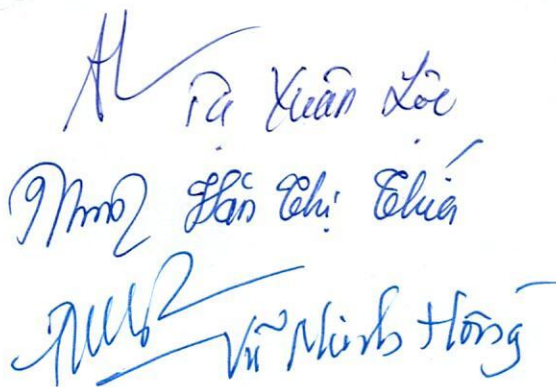 Tạ Xuân Lộc
Hán Thị Thiết
Vũ Minh Hồng